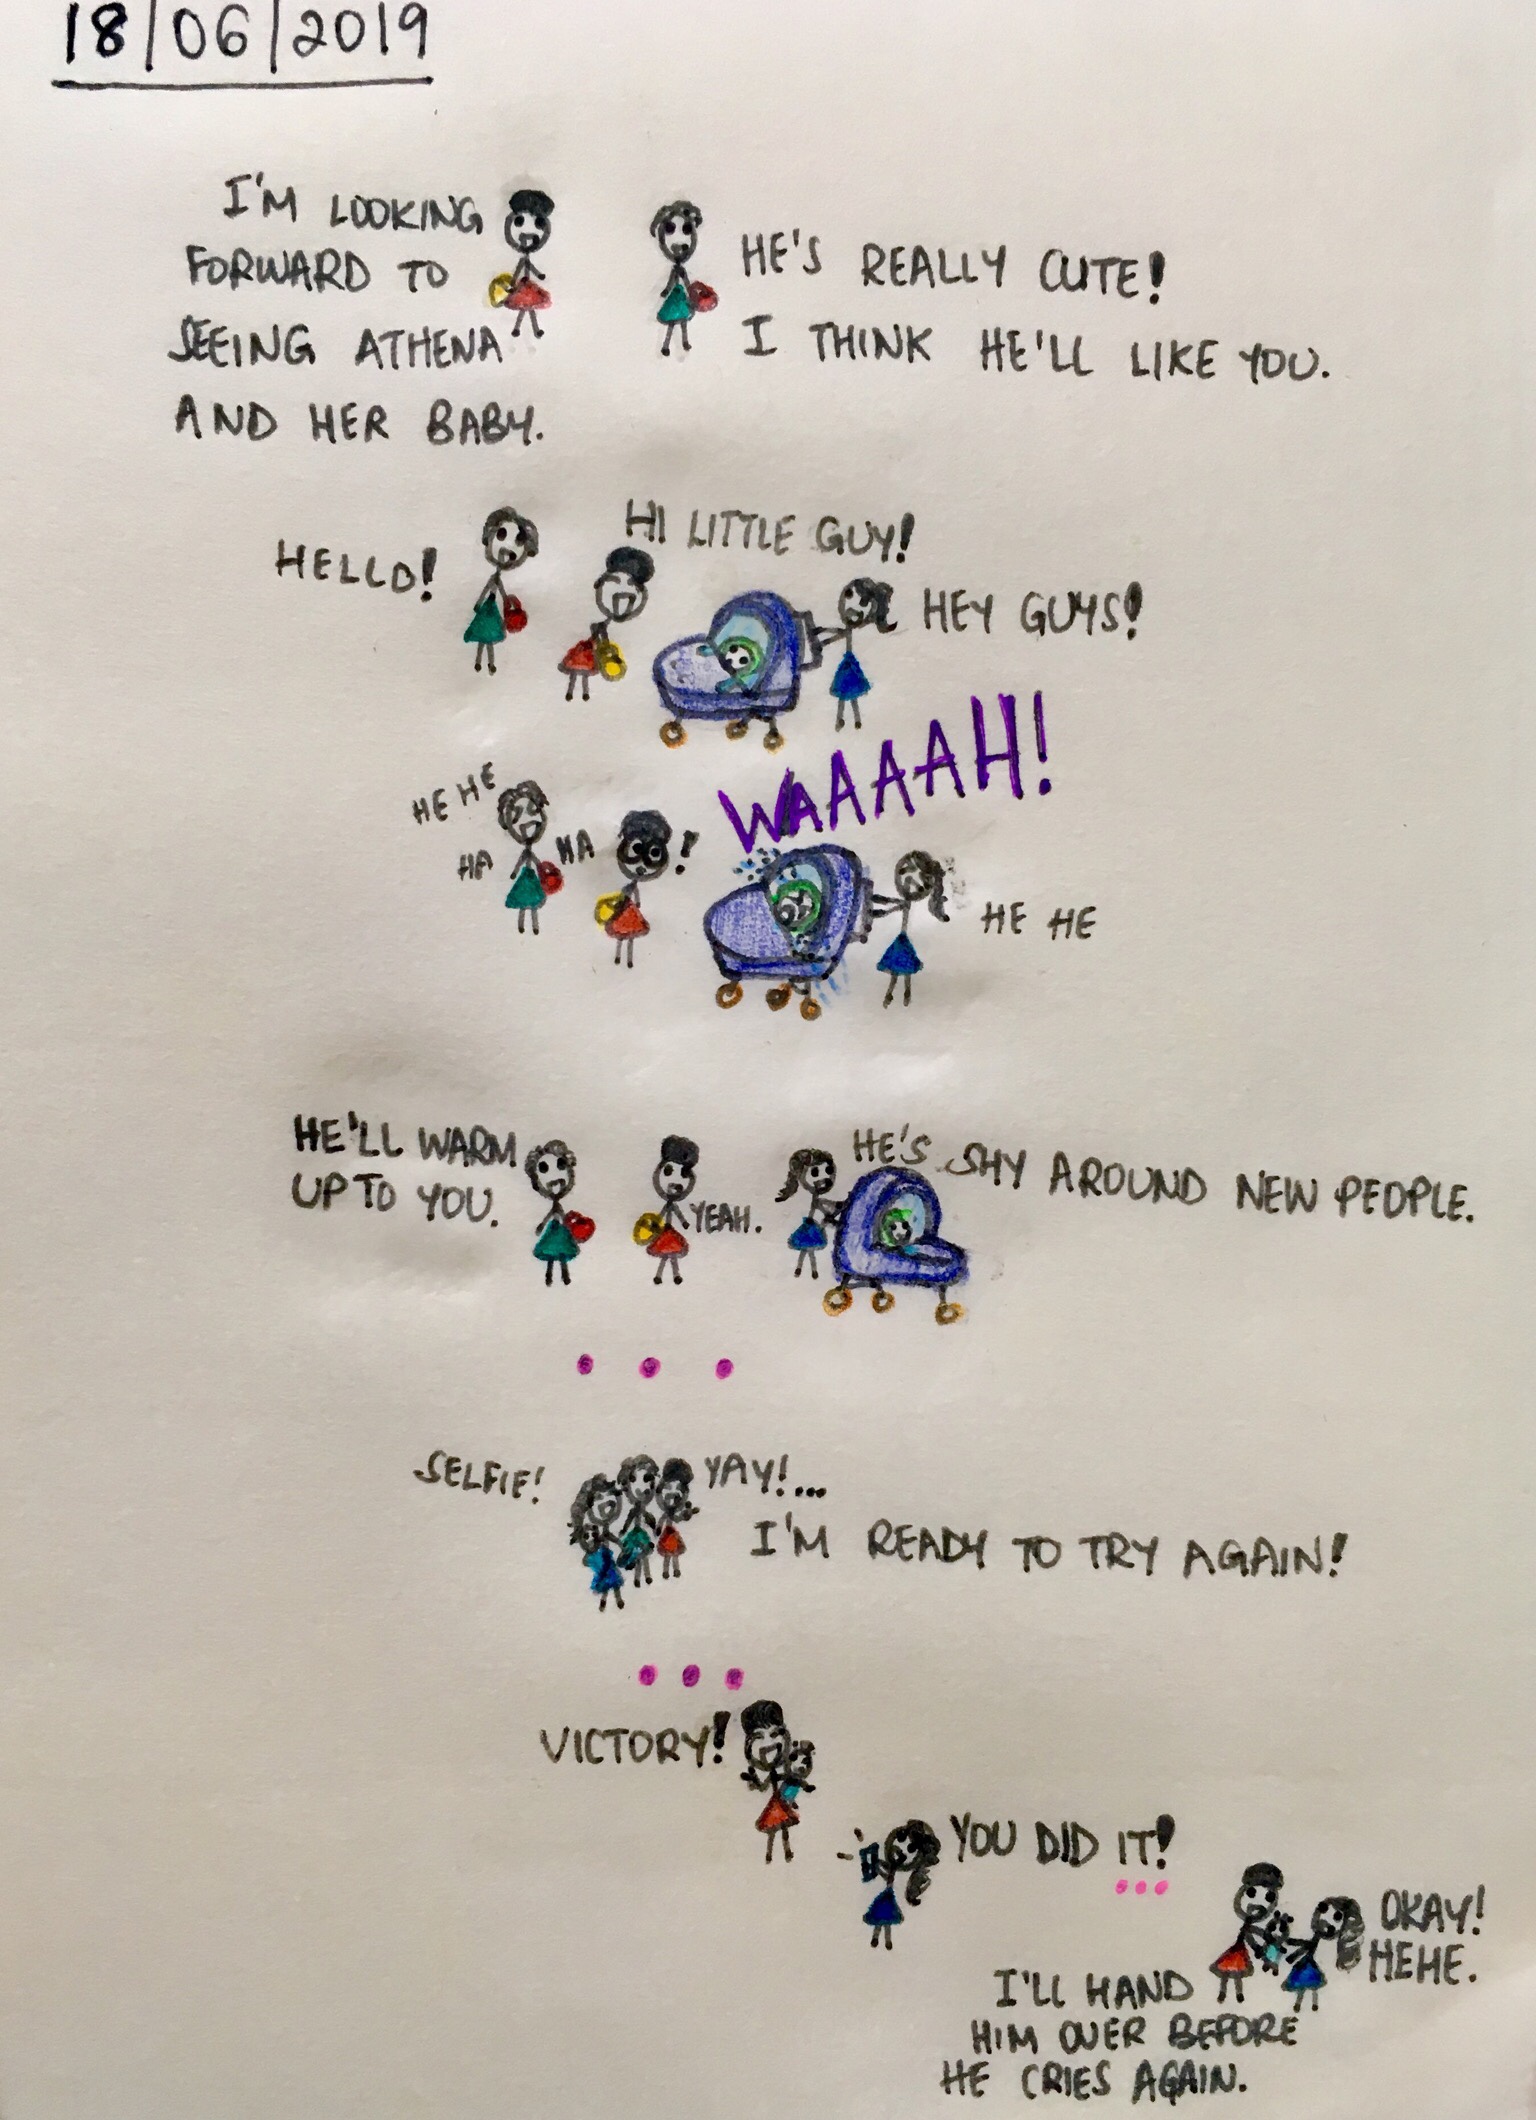 18/06/2019
I'M LOOKING
FORWARD TO
SEEING ATHENA
AND HER BABY.
HE'S REALLY CUTE!
I THINK HE'LL LIKE YOU.
HELLO!
HI LITTLE GUY!
HEY GUYS!
HE HE
HA HA
!
WAAAAH!
HE HE
HE'LL WARM
UP TO YOU.
YEAH.
HE'S SHY AROUND NEW PEOPLE.
...
SELFIE!
YAY!...
I'M READY TO TRY AGAIN!
...
VICTORY!
YOU DID IT!
...
I'LL HAND
HIM OVER BEFORE
HE CRIES AGAIN.
OKAY!
HEHE.